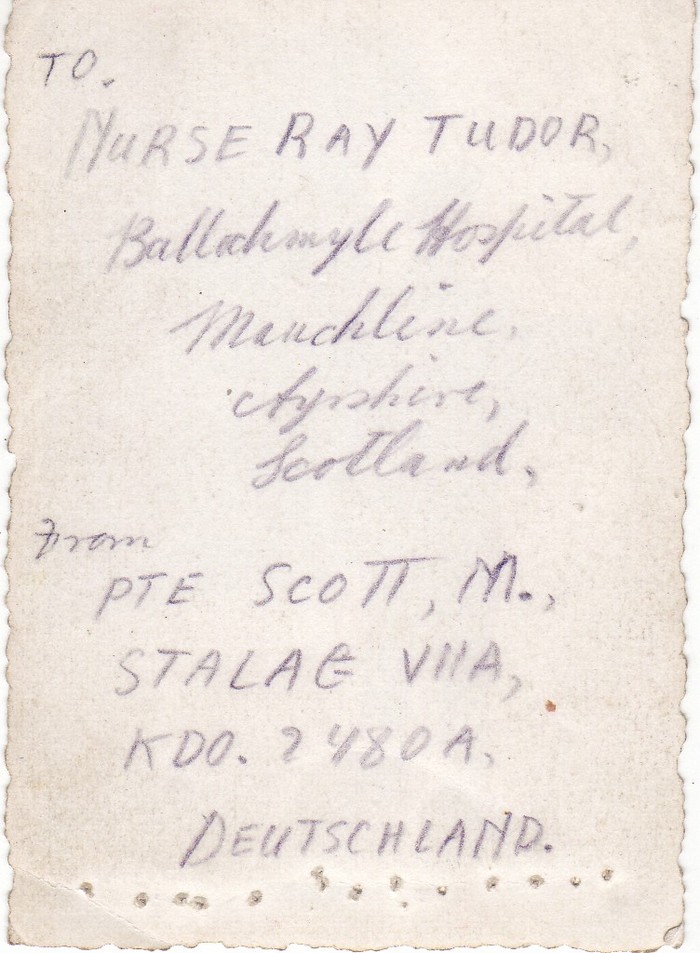 TO.
NURSE RAY TUDOR,
Ballochmyle Hospital,
Mauchline,
Ayrshire,
Scotland,
From
PTE SCOTT, M.,
STALAG VIIA,
KDO. 2480A,
DEUTSCHLAND.